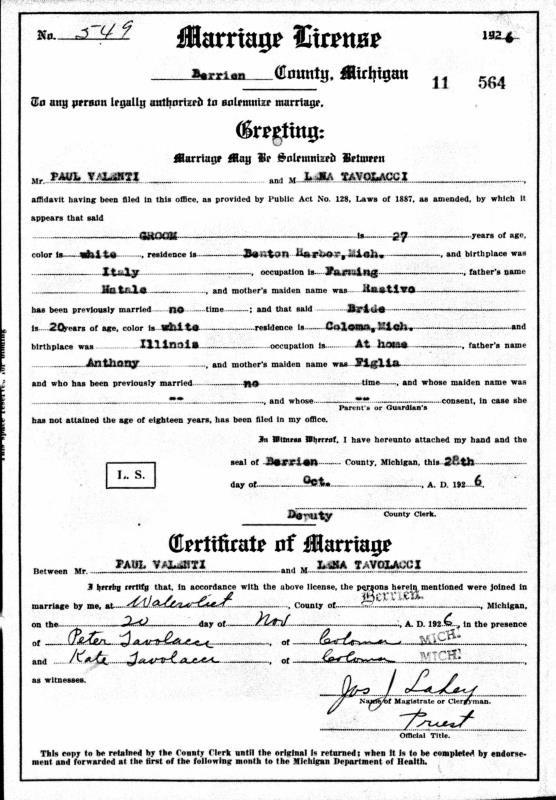 No. 549 Marriage License 1926
Berrien County, Michigan 11 564
To any person legally authorized to solemnize marriage,
Greeting:
Marriage May Be Solemnized Between
Mr. PAUL VALENTI and M LENA TAVOLACCI
affidavit having been filed in this office, as provided by Public Act No. 128, Laws of 1887, as amended, by which it
appears that said
GROOM is 27 years of age,
color is white, residence is Benton Harbor, Mich. , and birthplace was
Italy , occupation is Farming , father's name
Natale , and mother's maiden name was Rastivo
has been previously married no time ; and that said Bride
is 20 years of age, color is white residence is Coloma, Mich. and
birthplace was Illinois occupation is At home , father's name
Anthony , and mother's maiden name was Figlia
and who has been previously married no time , and whose maiden name was
-- , and whose -- consent, in case she
Parent's or Guardian's
has not attained the age of eighteen years, has been filed in my office.
In Witness Whereof, I have hereunto attached my hand and the
seal of Berrien County, Michigan, this 28th
L. S.
day of Oct. , A. D. 1926.
Deputy County Clerk.
Certificate of Marriage
Between Mr. PAUL VALENTI and M LENA TAVOLACCI
I hereby certify that, in accordance with the above license, the persons herein mentioned were joined in
marriage by me, at Watervliet , County of Berrien , Michigan,
on the 20 day of Nov , A. D. 1926, in the presence
of Peter Tavolacci , of Coloma MICH.
and Kate Tavolacci , of Coloma MICH.
as witnesses.
Jos J Lahey
Name of Magistrate or Clergyman.
Priest
Official Title.
This copy to be retained by the County Clerk until the original is returned; when it is to be completed by endorse-
ment and forwarded at the first of the following month to the Michigan Department of Health.